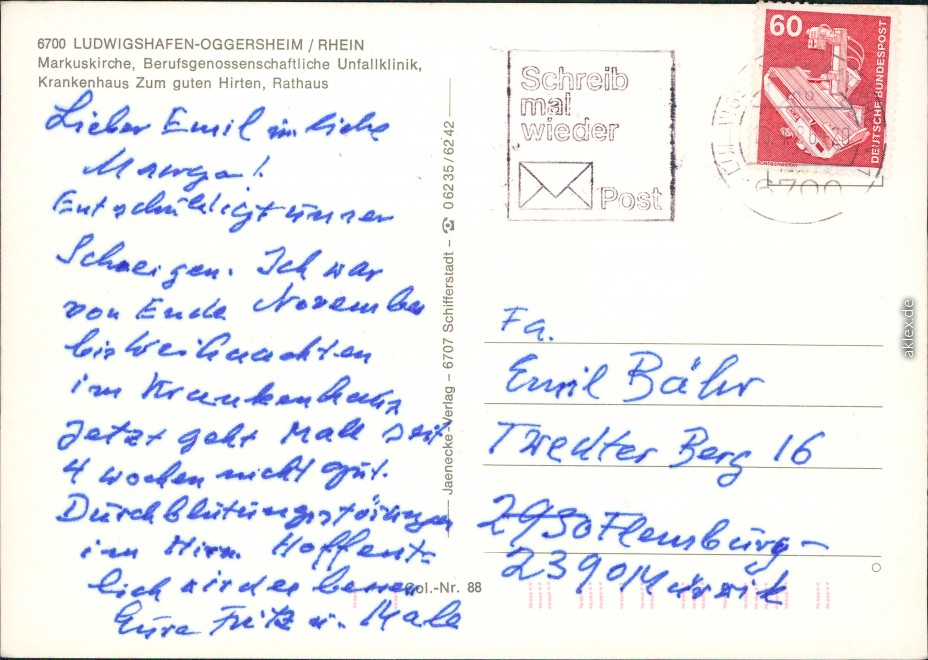 6700 LUDWIGSHAFEN-OGGERSHEIM / RHEIN
Markuskirche, Berufsgenossenschaftliche Unfallklinik,
Krankenhaus Zum guten Hirten, Rathaus
Lieber Emil u. liebe
Marga!
Entschuldigt unser
Schweigen. Ich war
von Ende November
bis Weihnachten
im Krankenhaus
Jetzt geht Male seit
4 wochen nicht gut.
Durchblutungsstörungen
im Hirn. Hoffent=
lich wird es besser.
Eure Fritz u. Male
Jaenecke-Verlag – 6707 Schifferstadt – ☎ 06235/6242
Col.-Nr. 88
Schreib
mal
wieder
Post
60
DEUTSCHE BUNDESPOST
6700
Fa.
Emil Bähr
Twedter Berg 16
2930 Flensburg-
2390 Mürwik
aklex.de